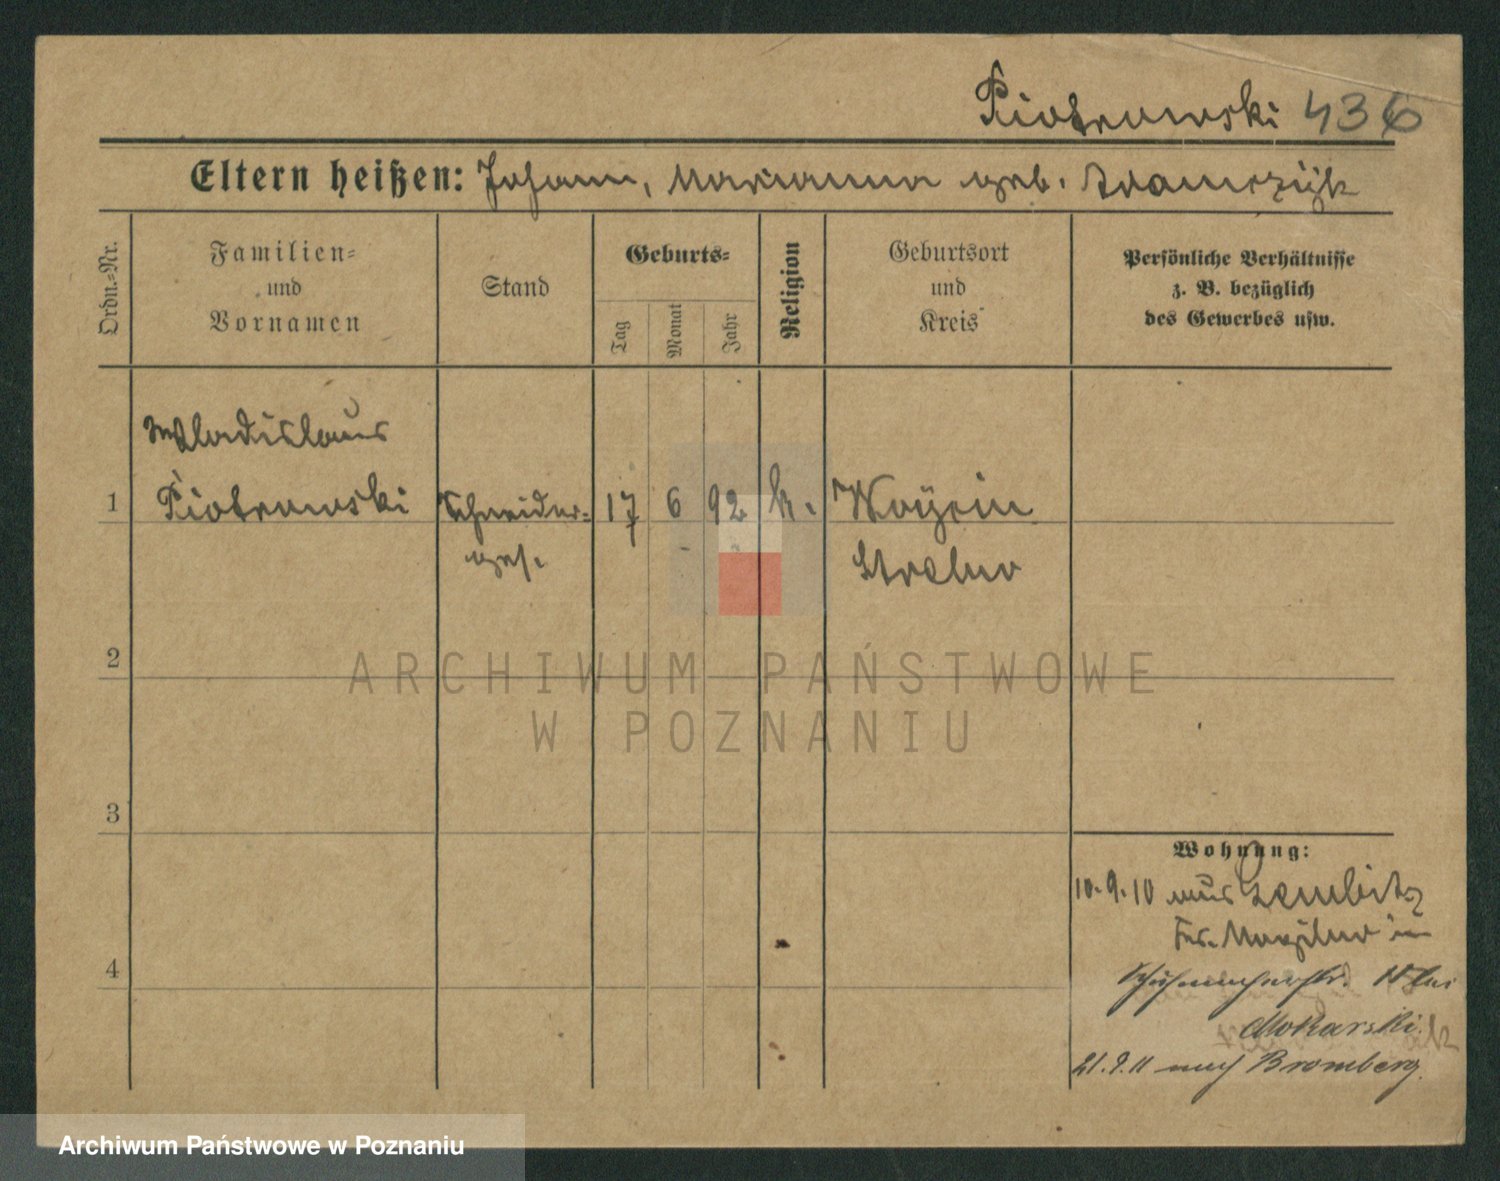 Piotrowski 436
Eltern heißen: Johann, Marianna geb.
Ordn.-Nr.
Familien-
und
Vornamen
Stand
Geburts-
Tag
Monat
Jahr
Religion
Geburtsort
und
Kreis
Persönliche Verhältnisse
z. B. bezüglich
des Gewerbes usw.
Wladislaus
1 Piotrowski Schneider- 17 6 92 k. Woycin
ges. Strelno
2
3
4
Wohnung:
10.9.10 aus Gembitz
Kr. Mogilno in
Schuhmacherstr. 11 bei
Mokarski.
21.9.11 nach Bromberg.
ARCHIWUM PAŃSTWOWE
W POZNANIU
Archiwum Państwowe w Poznaniu